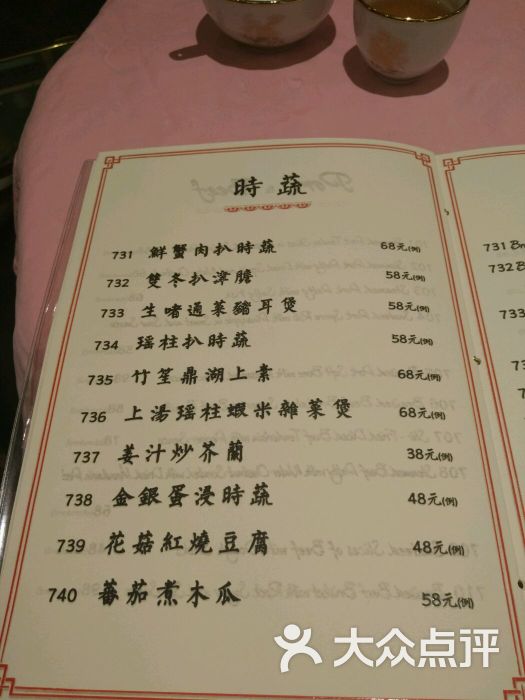 時蔬
731 鮮蟹肉扒時蔬 68元(例)
732 雙冬扒津膽 58元(例)
733 生啫通菜豬耳煲 58元(例)
734 瑤柱扒時蔬 58元(例)
735 竹笙鼎湖上素 68元(例)
736 上湯瑤柱蝦米雜菜煲 68元(例)
737 姜汁炒芥蘭 38元(例)
738 金銀蛋浸時蔬 48元(例)
739 花菇紅燒豆腐 48元(例)
740 蕃茄煮木瓜 58元(例)
731 Br
732 B
733
734
735
大众点评